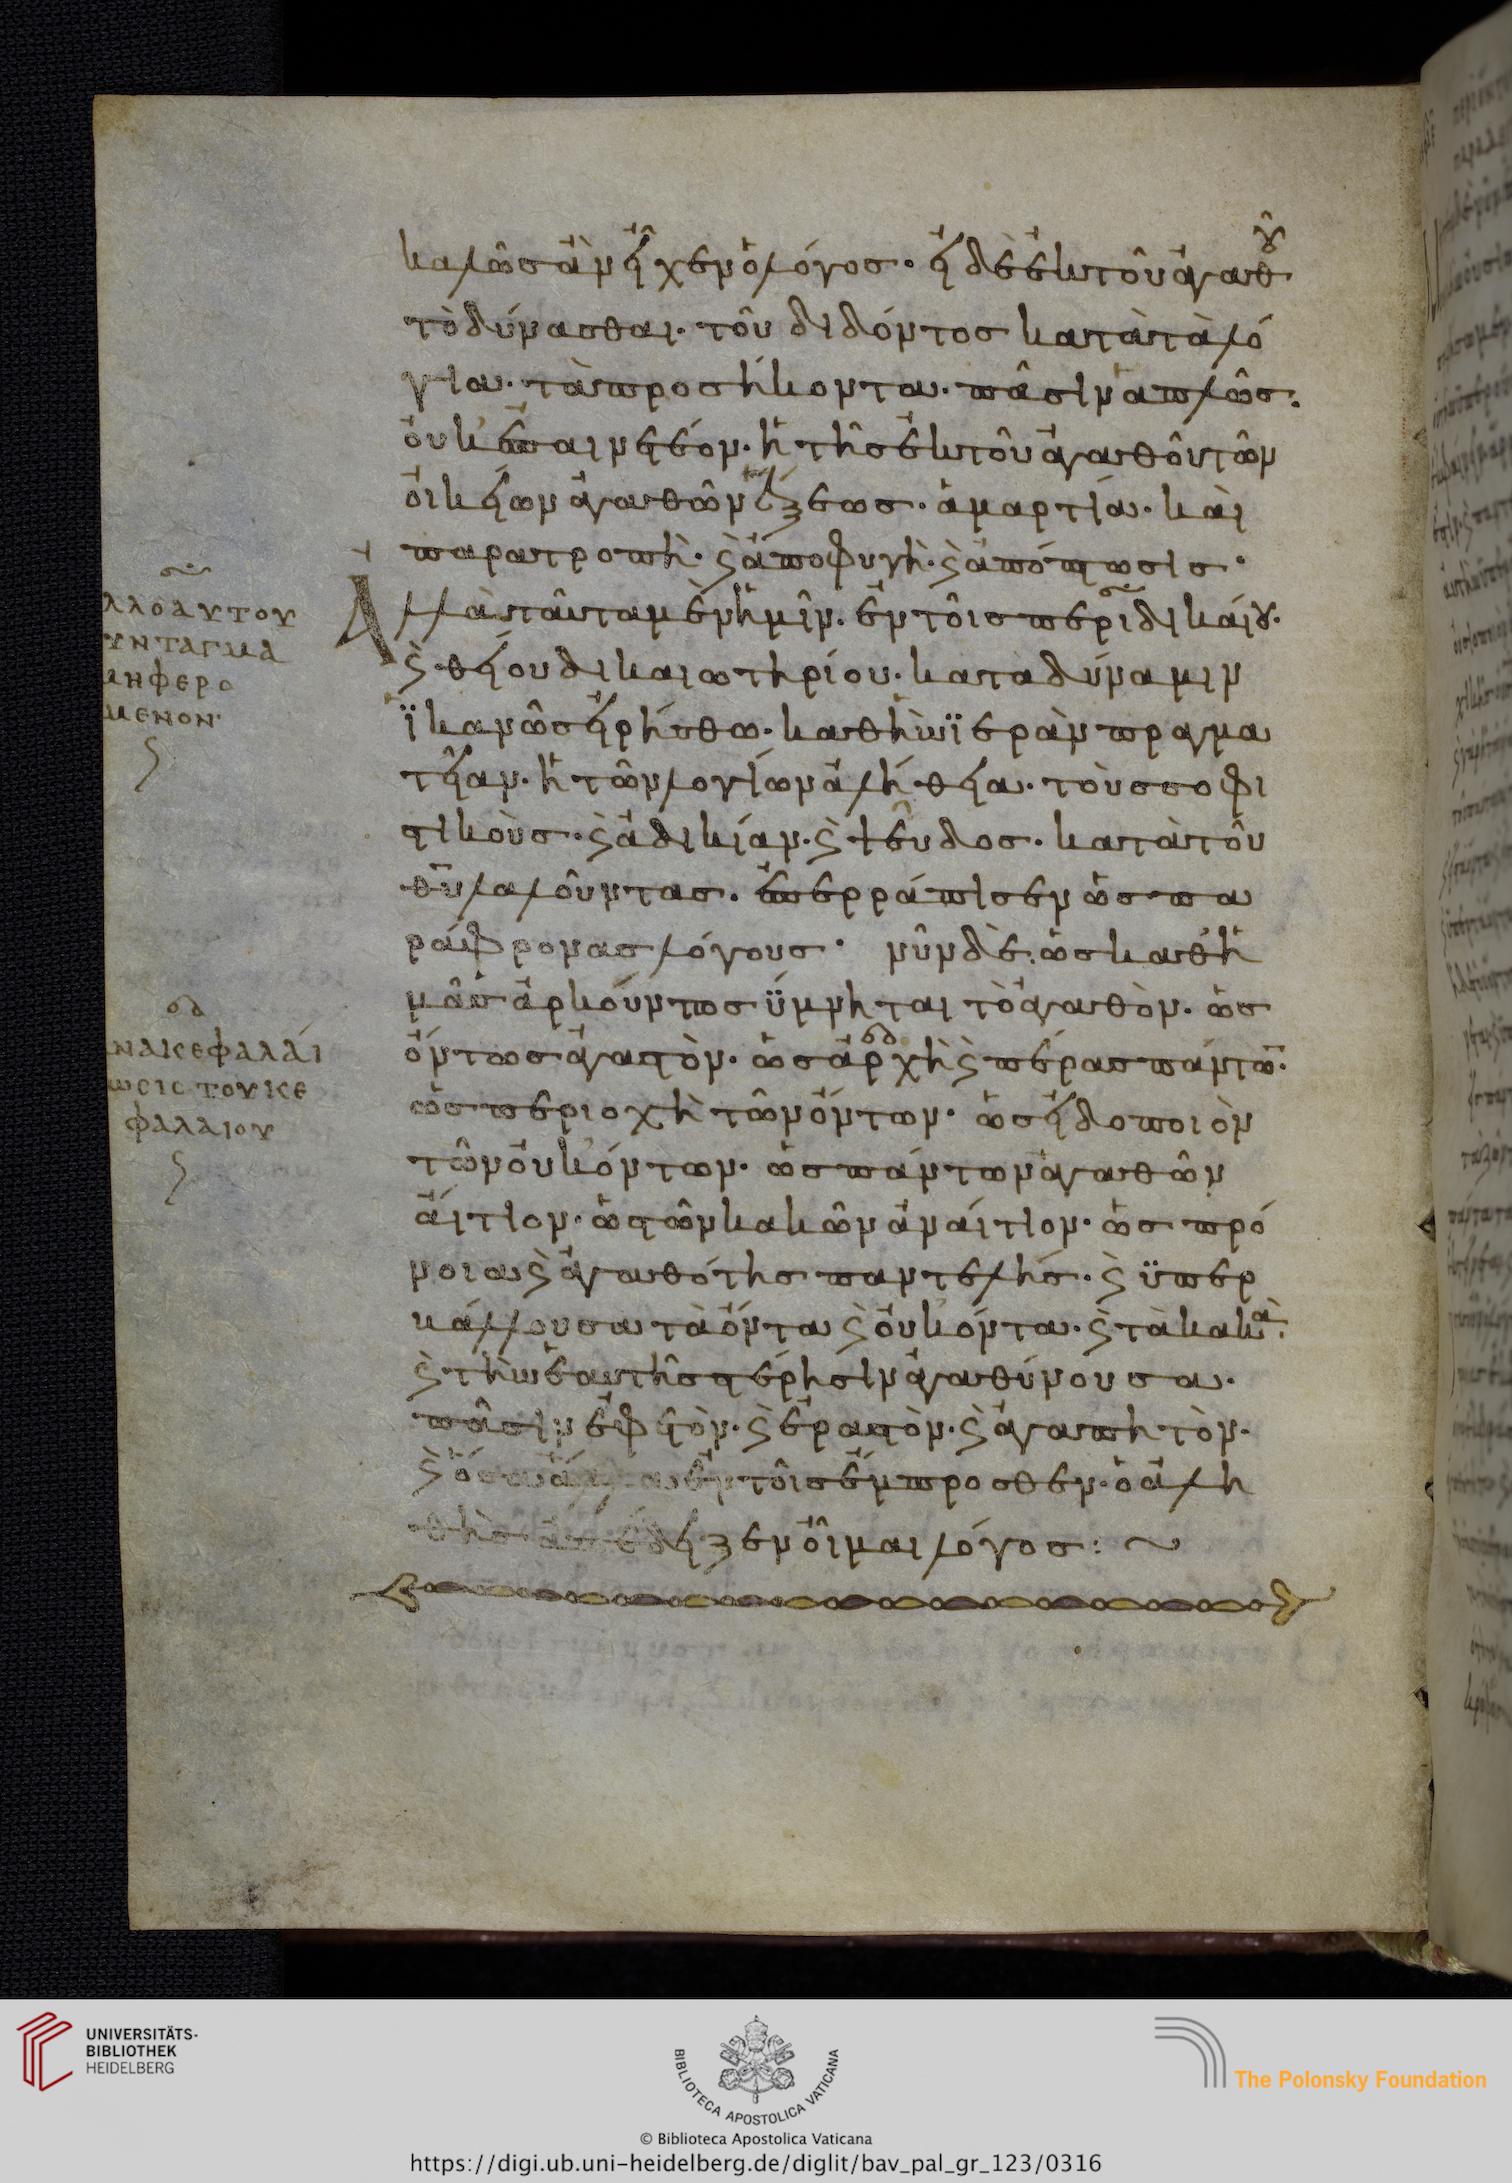 καλῶς ἂν εἶχεν ὁ λόγος· εἰ δὲ ἐκ τοῦ ἀγαθοῦ
τὸ δύνασθαι· τοῦ διδόντος κατὰ τὰ λό
για· τὰ προσήκοντα· πᾶσιν ἁπλῶς·
οὐκ ἐπαινετέον· ἡ τῆς ἐκ τοῦ ἀγαθοῦ τῶν
οἰκείων ἀγαθῶν ἕξεως· ἁμαρτία· καὶ
παρατροπὴ· ϗ ἀποφυγὴ· ϗ ἀπόπτωσις·
Ἀλλὰ ταῦτα μὲν ἡμῖν· ἐν τοῖς περὶ δικαίου·
ϗ θείου δικαιωτηρίου· κατα δύναμιν
ϊκανῶς εἰρήσθω· καθ' ἣν ϊερὰν πραγμα
τείαν· ἡ τῶν λογίων ἀλήθεια· τοὺς σοφι
στικοὺς· ϗ ἀδικίαν· ϗ ψεῦδος· κατὰ τοῦ
θῦ λαλοῦντας· ἐπερράπισεν ὡς πα
ράφρονας λόγους· νῦν δὲ· ὡς καθ' ἡ
μᾶς ἀρκούντως ϋμνηται τὸ ἀγαθὸν· ὡς
ὄντως ἀγαστὸν· ὡς ἀρχὴ ϗ πέρας πάντων·
ὡς περιοχὴ τῶν ὄντων· ὡς εἰδοποιὸν
τῶν οὐκ ὄντων· ὡς πάντων ἀγαθῶν
αἴτιον· ὡς τῶν κακῶν ἀναίτιον· ὡς πρό
νοια ϗ ἀγαθότης παντελής· ϗ ϋπερ
βάλλουσα τὰ ὄντα ϗ οὐκ ὄντα· ϗ τὰ κακὰ·
ϗ τὴν ἑαυτῆς στέρησιν ἀγαθύνουσα·
πᾶσιν ἐφετὸν· ϗ ἐραστὸν· ϗ ἀγαπητὸν·
ϗ ὅσα ἄλλα ἐν τοῖς ἔμπροσθεν· ὁ ἀλη
θὴς ἀπέδειξεν οἶμαι λόγος:~
ΛΛΟ ΑΥΤΟΥ
ΥΝΤΑΓΜΑ
ΜΗ ΦΕΡΟ
ΜΕΝΟΝ·
ΝΑΚΕΦΑΛΑΊ
ΩΣΙΣ ΤΟΥ ΚΕ
ΦΑΛΑΙΟΥ
UNIVERSITÄTS-
BIBLIOTHEK
HEIDELBERG
BIBLIOTECA APOSTOLICA VATICANA
The Polonsky Foundation
© Biblioteca Apostolica Vaticana
https://digi.ub.uni-heidelberg.de/diglit/bav_pal_gr_123/0316